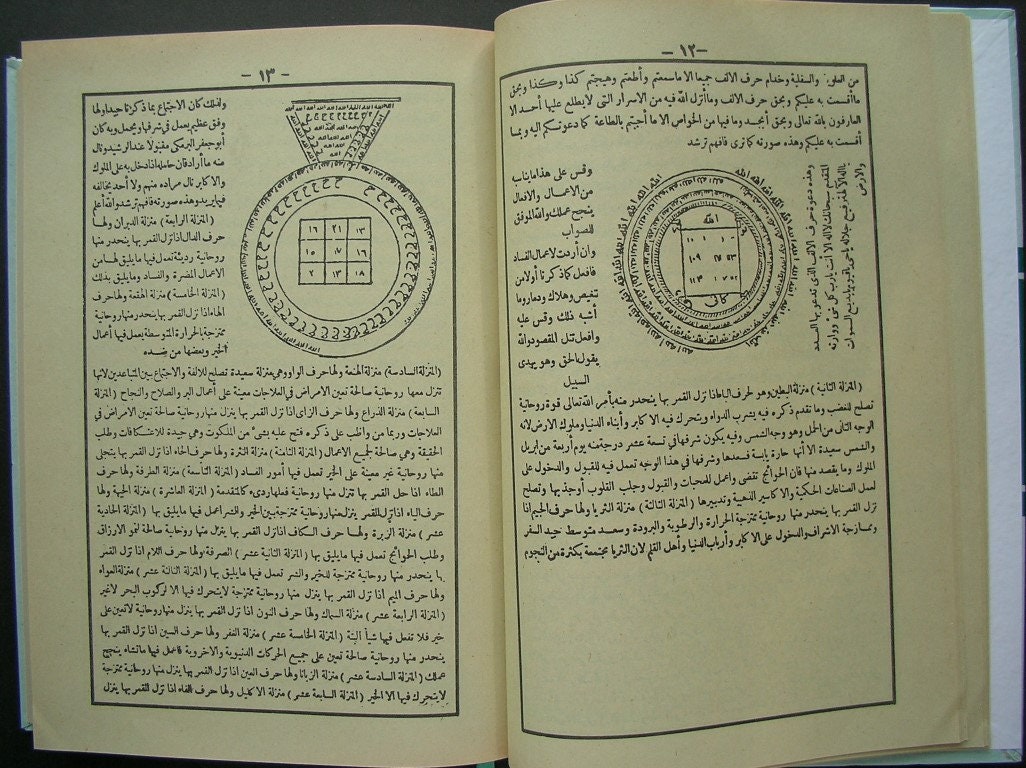 -١٢-
من العلوية والسفلية وخدام حرف الالف جميعا الا ما سمعتم وأطعتم وهيجتم كذا وكذا وبحق
ما أقسمت به عليكم وبحق حرف الالف وما أنزل الله فيه من الاسرار التى لا يطلع عليها أحد الا
العارفون بالله تعالى وبحق أبجد وما فيها من الخواص الا ما أجبتم بالطاعة كما دعوتكم اليه وبما
أقسمت به عليكم وهذه صورته كما ترى فافهم ترشد
وقس على هذا ما يناسب
من الاعمال والافعال
ينجح عملك والله الموفق
للصواب
وان أردت لاعمال الفساد
فافعل كما ذكرنا أولا من
تبغيض وهلاك ودمار وما
أشبه ذلك وقس عليه
وافعل تنل المقصود والله
يقول الحق وهو يهدى
السبيل
الله
(المنزلة الثانية) منزلة البطين وهو لحرف الباء اذا نزل القمر بها ينحدر منه بأمر الله تعالى قوة روحانية
تصلح للغضب وما تقدم ذكره فيه يشرب الدواء ويتحرك فيه الاكابر وأبناء الدنيا وملوك الارض لانه
الوجه الثانى من الحمل وهو وجه الشمس وفيه يكون شرفها فى تسعة عشر درجة منه يوم أربعة من ابريل
والشمس سعيدة الا أنها حارة يابسة فسعدها وشرفها فى هذا الوجه تعمل فيه للقبول والدخول على
الملوك وما يقصد منها فان الحوائج تقضى واعمل للمحبات والقبول وجلب القلوب أوجذبها وتصلح
لعمل الصناعات الحكمية والاكاسير الذهبية وتدبيرها (المنزلة الثالثة) منزلة الثريا ولها حرف الجيم اذا
نزل القمر بها ينحدر منها روحانية ممتزجة الحرارة والرطوبة والبرودة وسعد متوسط جيد السفر
وممازجة الاشراف والدخول على الاكابر وأرباب الدنيا وأهل القلم لان الثريا مجتمعة بكثرة من النجوم
-١٣-
ولذلك كان الاجتماع بما ذكرنا حيدا ولها
وفق عظيم يعمل فى شرفها ويحمل وبه كان
أبو جعفر البرمكى مقبولا عند الرشيد ونال
منه ما أراد فان حامله اذا دخل به على الملوك
والاكابر نال مراده منهم ولا أحد يخالفه
فيما يريد وهذه صورته فافهم ترشد والله أعلم
(المنزلة الرابعة) منزلة الدبران ولها
حرف الدال اذا نزل القمر بها ينحدر منها
روحانية رديئة تعمل فيها ما يليق لها من
الاعمال المضرة والفساد وما يليق بذلك
(المنزلة الخامسة) منزلة الهقعة ولها حرف
الهاء اذا نزل القمر بها ينحدر منها روحانية
ممتزجة بالحرارة المتوسطة يعمل فيها أعمال
الخير وبعضها من ضده
١٦ ٢١ ١٣
١٥ ١٧ ١٦
٢ ١٣ ١٨
(المنزلة السادسة) منزلة الهنعة ولها حرف الواو وهى منزلة سعيدة تصلح للالفة والاجتماع بين المتباعدين لانها
تنزل معها روحانية صالحة تعين الامراض فى العلاجات معينة على أعمال البر والصلاح والنجاح (المنزلة
السابعة) منزلة الذراع ولها حرف الزاى اذا نزل القمر بها ينزل منها روحانية صالحة تعين الامراض فى
العلاجات وربما من واظب على ذكره فتح عليه بشئ من الملكوت وهى جيدة للاعتكافات وطلب
الحقيقة وهى صالحة لجميع الاعمال (المنزلة الثامنة) منزلة النثرة ولها حرف الحاء اذا نزل القمر بها يتجلى
منها روحانية غير معينة على الخير تعمل فيها أمور الفساد (المنزلة التاسعة) منزلة الطرفة ولها حرف
الطاء اذا حل القمر بها تنزل منها روحانية فعلها ردىء كالمتقدمة (المنزلة العاشرة) منزلة الجبهة ولها
حرف الياء اذا نزل القمر بها ينزل منها روحانية ممتزجة بين الخير والشر اعمل فيها ما يليق بها (المنزلة الحادية
عشر) منزلة الزبرة ولها حرف الكاف اذا نزل القمر بها ينزل منها روحانية صالحة لنمو الارزاق
وطلب الحوائج تعمل فيها ما يليق بها (المنزلة الثانية عشر) الصرفة ولها حرف اللام اذا نزل القمر
بها ينحدر منها روحانية ممتزجة للخير والشر تعمل فيها ما يليق بها (المنزلة الثالثة عشر) منزلة العواه
ولها حرف الميم اذا نزل القمر بها ينزل منها روحانية ممتزجة لا يتحرك فيها الا لركوب البحر لا غير
(المنزلة الرابعة عشر) منزلة السماك ولها حرف النون اذا نزل القمر بها ينزل منها روحانية لا تعين على
خير فلا تفعل فيها شيأ البتة (المنزلة الخامسة عشر) منزلة الغفر ولها حرف السين اذا نزل القمر بها
ينحدر منها روحانية صالحة تعين على جميع الحركات الدنيوية والاخروية فاعمل فيها ما تشاء ينجح
عملك (المنزلة السادسة عشر) منزلة الزبانا ولها حرف العين اذا نزل القمر بها ينزل منها روحانية ممتزجة
لا يتحرك فيها الا الخير (المنزلة السابعة عشر) منزلة الاكليل ولها حرف الفاء اذا نزل القمر بها ينزل